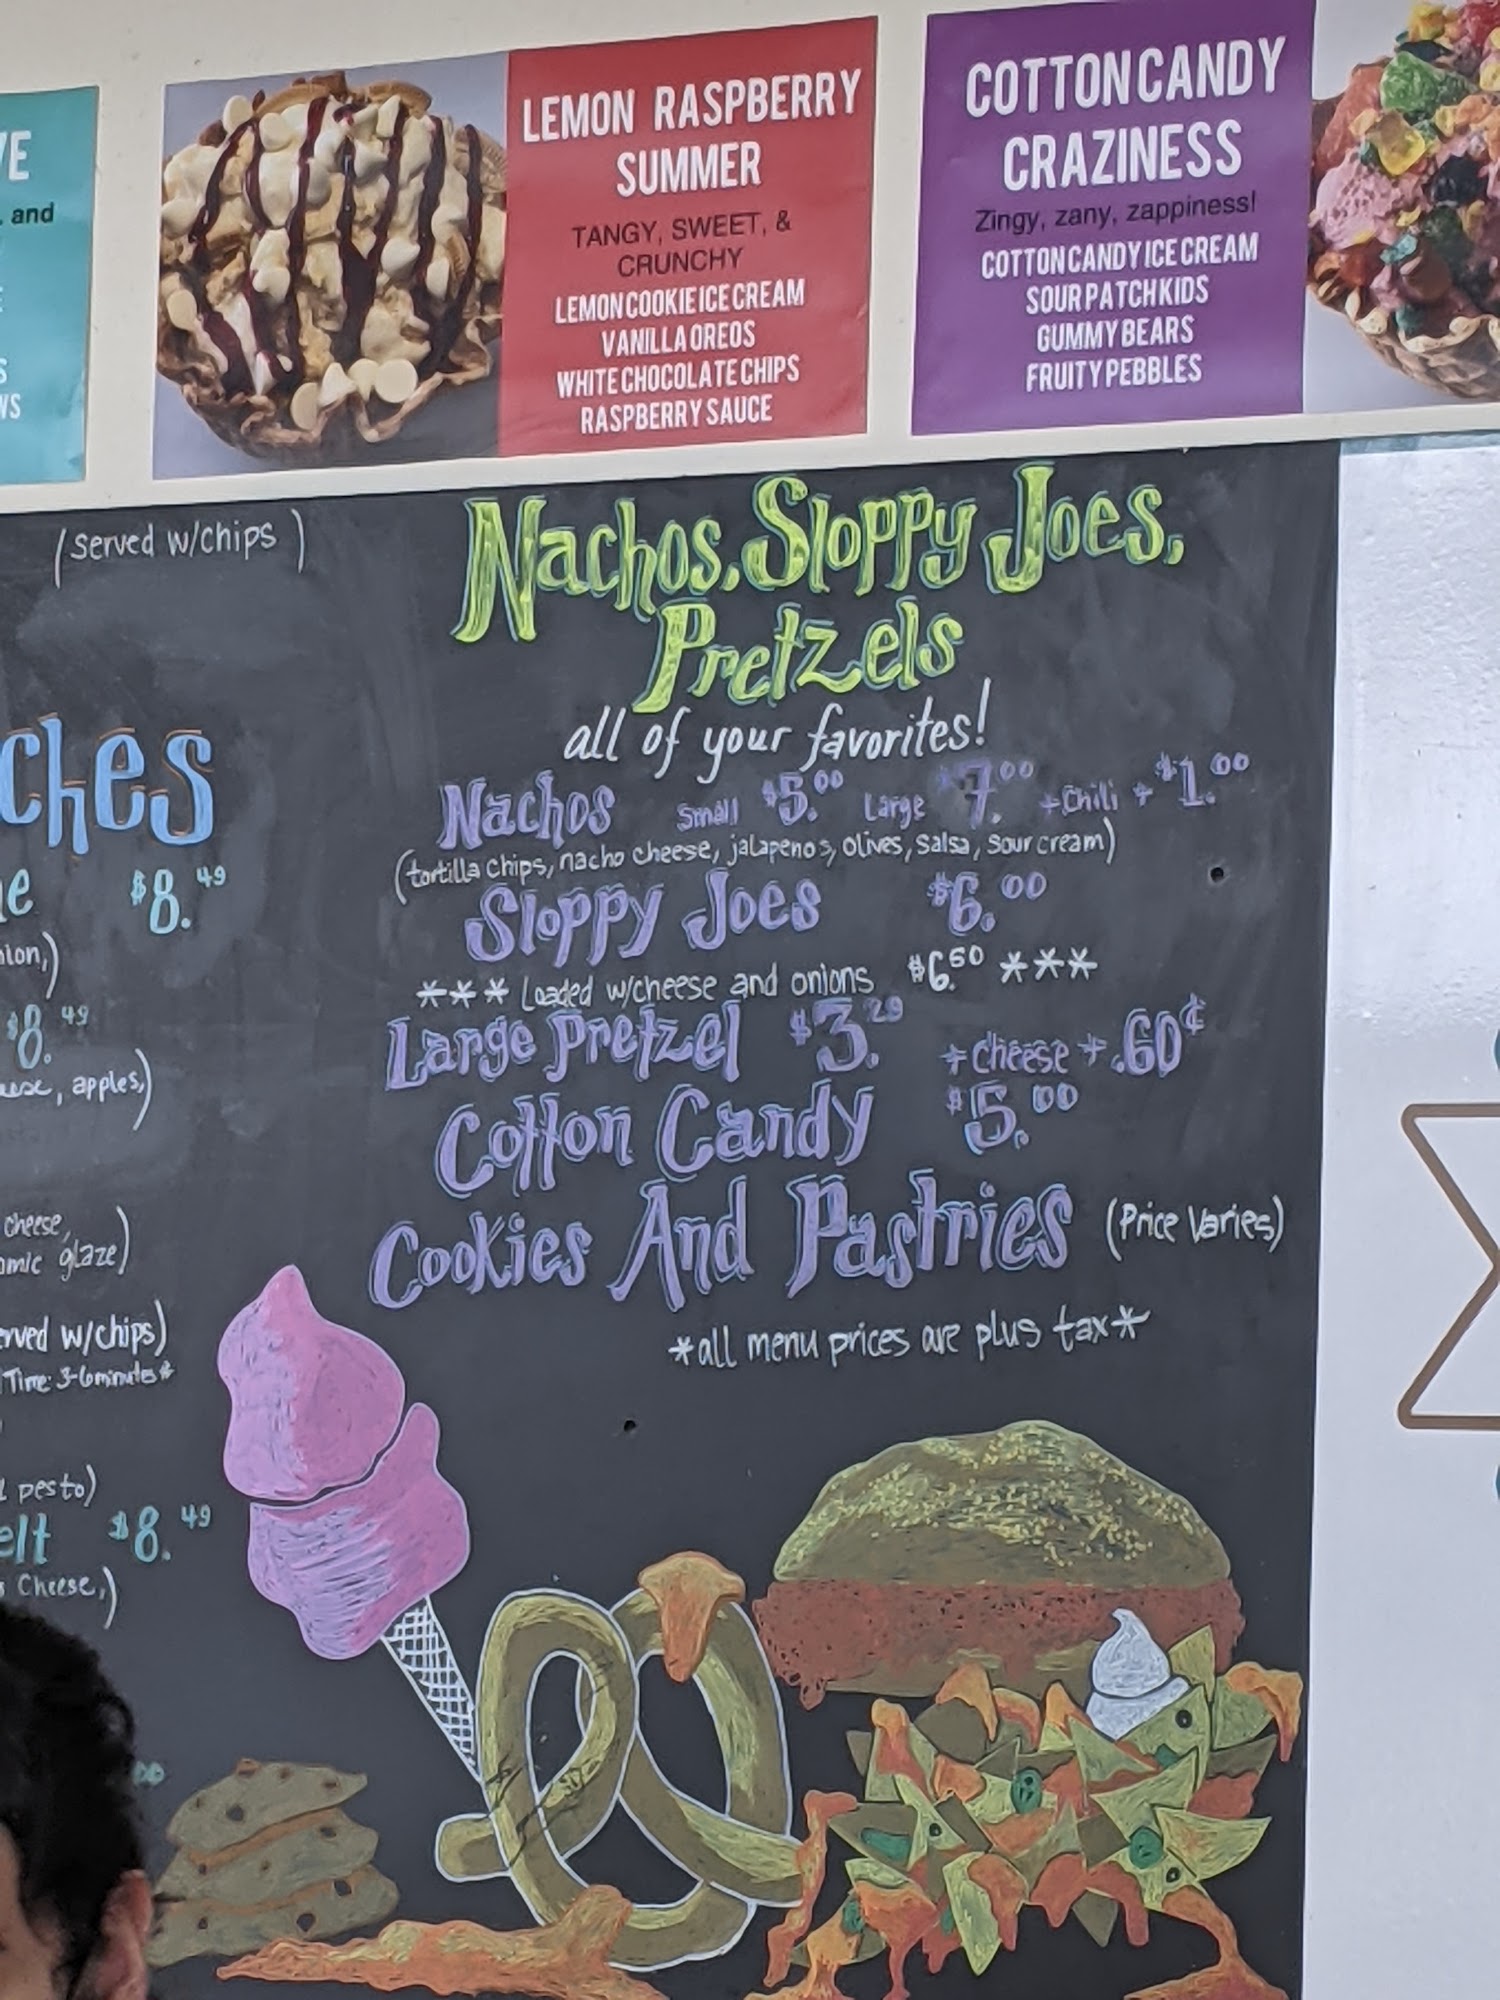 VE
. and
S
WS
LEMON RASPBERRY
SUMMER
TANGY, SWEET, &
CRUNCHY
LEMON COOKIE ICE CREAM
VANILLA OREOS
WHITE CHOCOLATE CHIPS
RASPBERRY SAUCE
COTTON CANDY
CRAZINESS
Zingy, zany, zappiness!
COTTON CANDY ICE CREAM
SOUR PATCH KIDS
GUMMY BEARS
FRUITY PEBBLES
(served w/chips )
ches
e $8.49
nion,)
$8.49
, apples,)
cheese,
omic glaze)
erved w/chips)
Time: 3-6 minutes*
pesto)
elt $8.49
s Cheese,)
Nachos, Sloppy Joes,
Pretzels
all of your favorites!
Nachos Small $5.00 Large $7.00 +Chili + $1.00
(tortilla chips, nacho cheese, jalapenos, olives, salsa, sour cream)
Sloppy Joes $6.00
*** Loaded w/cheese and onions $6.60 ***
Large Pretzel $3.29 + Cheese + .60¢
Cotton Candy $5.00
Cookies And Pastries (Price Varies)
*all menu prices are plus tax*